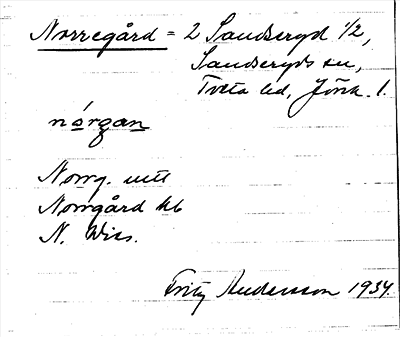 Norregård = 2 Sandseryd 1/2,
Sandseryds sn,
Tveta hd, Jönk. l.
nórgan
Norrg. utt
Norrgård kb
N. Wiss.
Fritz Andersson 1934